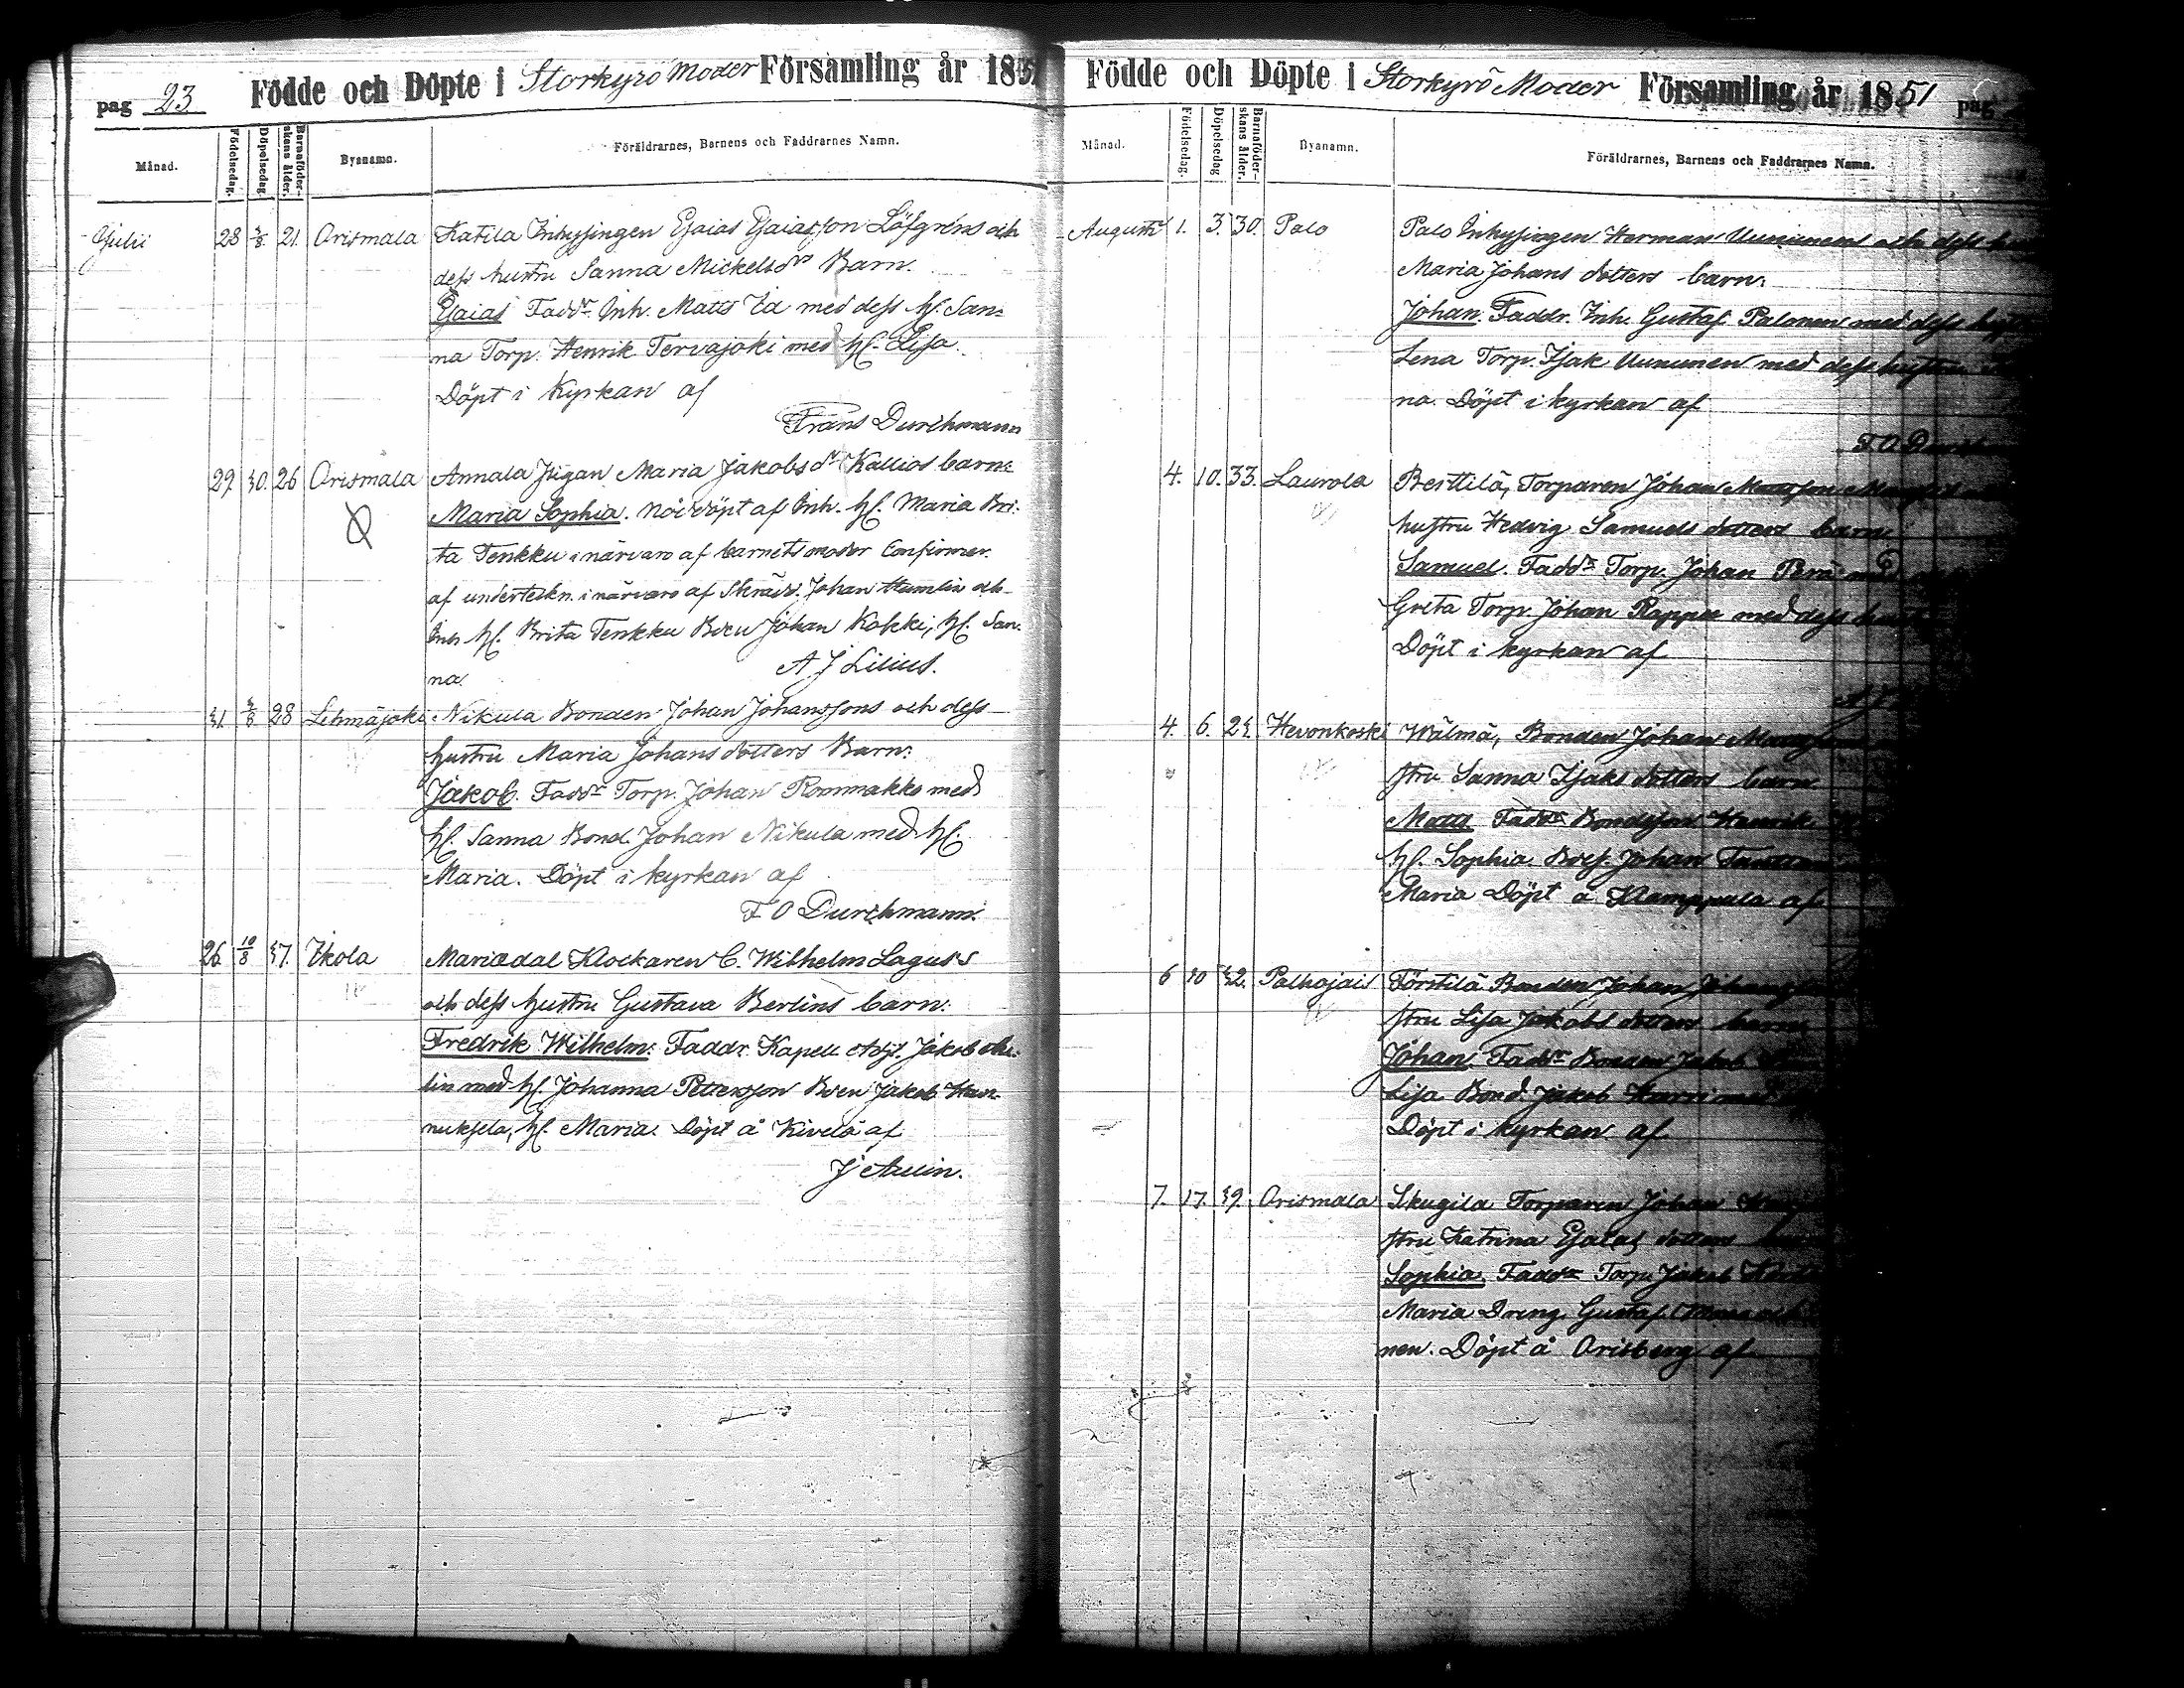 pag 23. Födde och Döpte i Storkyrö Moder Församling år 1851
Månad. Födelsedag. Döpelsedag Barnaföderskans ålder. Byanamn. Föräldrarnes, Barnens och Faddrarnes Namn.
Julii 28 3/8 21. Orismala Katila Inhysingen Esaias Esaiasson Löfgréns och
dess hustru Sanna Mickelsdrs Barn.
Esaias Faddr. Inh. Matts Ea med dess H. San-
na Torp. Henrik Tervajoki med H. Lisa.
Döpt i Kyrkan af
Frans Durchmann
29. 30. 26 Orismala Annala Pigan Maria Jakobsdr Kallios barn:
Maria Sophia. nöddöpt af Inh. H. Maria Bri-
ta Tenkku i närvaro af barnets moder Confirmer.
af underteckn. i närvaro af Skrädd. Johan Humlin och
Inh H. Brita Tenkku Bden Johan Kokki, H. San-
na. A J Lilius.
31. 3/8 28 Lehmäjoki Nikula Bonden Johan Johanssons och dess
hustru Maria Johansdotters Barn:
Jakob. Faddr Torp. Johan Rommakko med
H. Sanna Bond. Johan Nikula med H.
Maria. Döpt i kyrkan af
F O Durchmann.
26. 10/8 37. Ikola Mariedal Klockaren C. Wilhelm Lagus's
och dess hustru Gustava Berlins barn:
Fredrik Wilhelm: Faddr. Kapell Adj. Jakob Au-
lin med H. Johanna Pettersson Bden Jakob Han-
nuksela, H. Maria. Döpt å Kivelä af
J Aulin.
Födde och Döpte i Storkyrö Moder Församling år 1851 pag
Månad. Födelsedag. Döpelsedag Barnaföderskans ålder. Byanamn. Föräldrarnes, Barnens och Faddrarnes Namn.
Augusti 1. 3. 30. Palo Palo Inhysingen Herman Ununens och dess
Maria Johans dotters barn:
Johan. Faddr. Inh. Gustaf Palonen med dess
Lena Torp. Isak Ununen med dess hustru
na. Döpt i kyrkan af
F O
4. 10. 33. Laurola Berttilä, Torparen Johan Mattsson
hustru Hedvig Samuels dotters barn:
Samuel. Faddr Torp. Johan Perä med
Greta Torp. Johan Rappu med dess
Döpt i kyrkan af
A J
4. 6. 23. Hevonkoski Wälmä, Bonden Johan
stru Sanna Isaks dotters barn
Matts Faddr Bondeson Henrik
H. Sophia. Johan
Maria Döpt å Klamppula af
6 10 32. Palhojais Törstilä Bonden Johan
stru Lisa Jakobs dotters barn
Johan. Faddr Bonden Jakob
Lisa Bond. Jakob Harri med
Döpt i kyrkan af
7. 17. 39. Orismala Skugila Torparen Johan
stru Katrina Esaias dotters
Sophia. Faddr Torp. Jakob
Maria Dreng Gustaf
nen. Döpt å Orisberg af